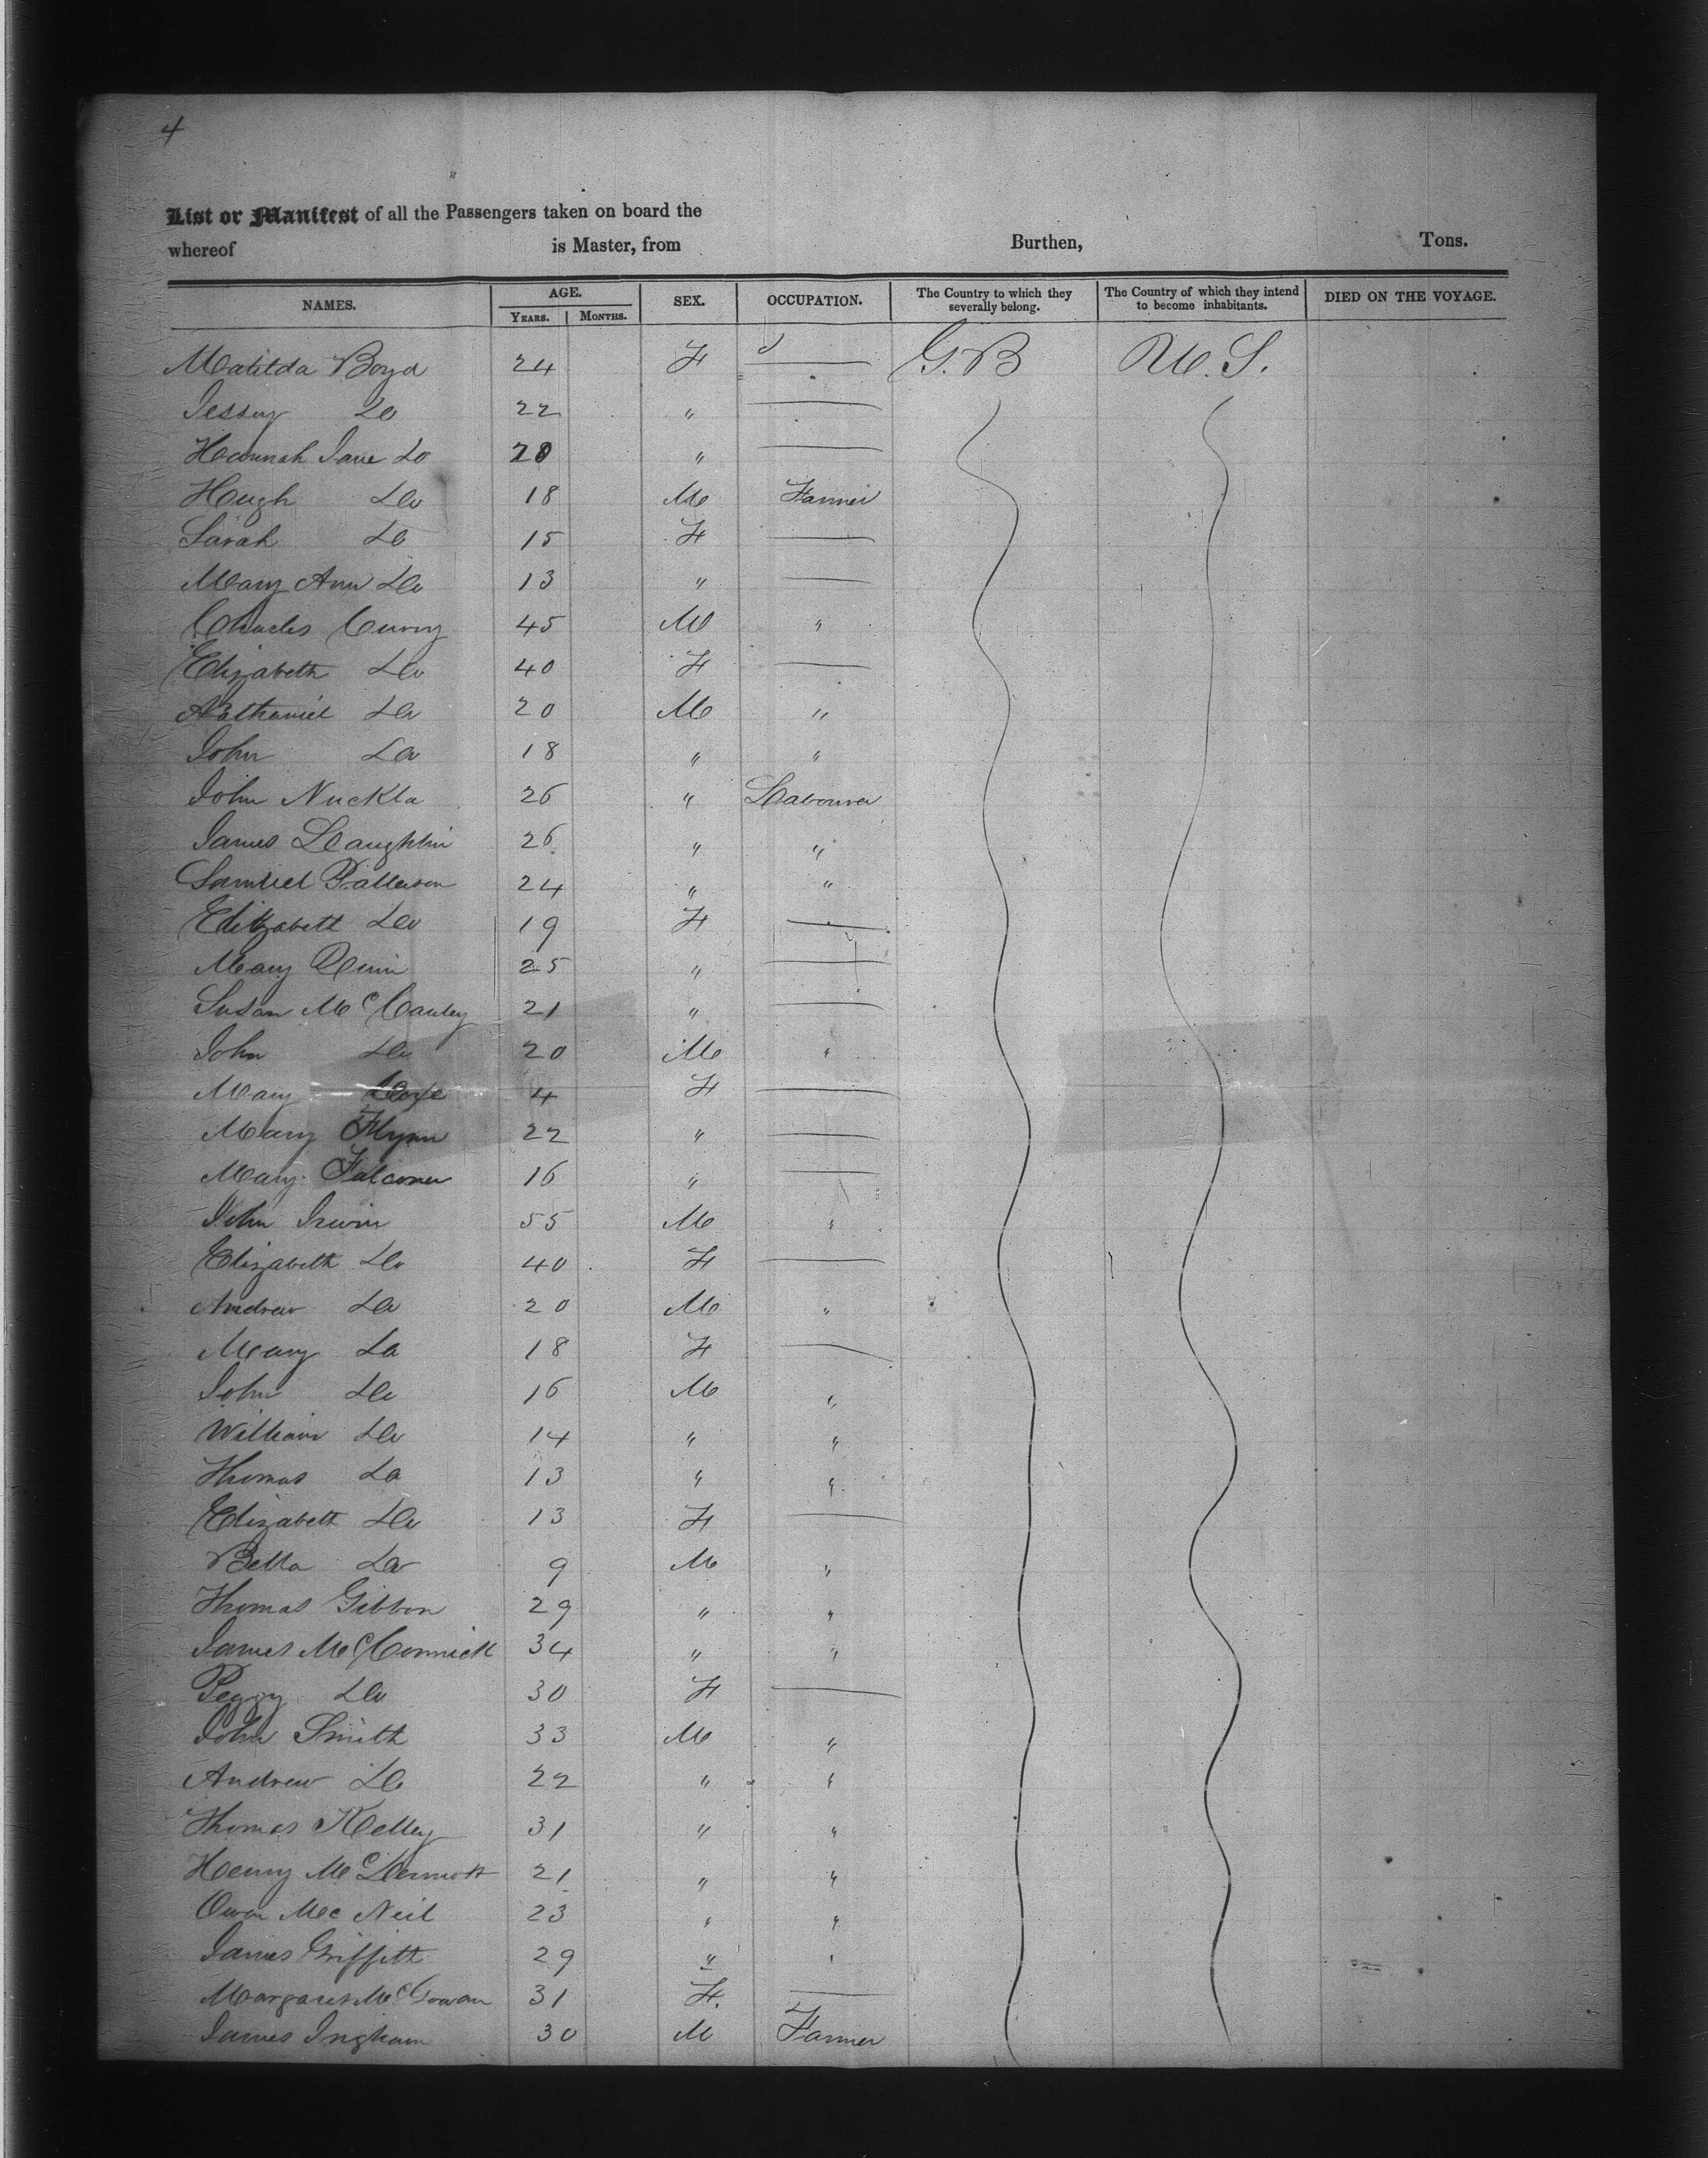 4
List or Manifest of all the Passengers taken on board the
whereof is Master, from Burthen, Tons.
NAMES. AGE. YEARS. MONTHS. SEX. OCCUPATION. The Country to which they severally belong. The Country of which they intend to become inhabitants. DIED ON THE VOYAGE.
Matilda Boyd 24 F — G.B U.S.
Jessey Do 22 " —
Hannah Jane Do 20 " —
Hugh Do 18 M Farmer
Sarah Do 15 F —
Mary Ann Do 13 " —
Charles Curry 45 M "
Elizabeth Do 40 F —
Nathaniel Do 20 M "
John Do 18 " "
John Nuckla 26 " Labourer
James Laughlin 26 " "
Samuel Patterson 24 " "
Elizabeth Do 19 F —
Mary Quin 25 " —
Susan McCauley 21 " —
John Do 20 M "
Mary 4 F —
Mary Flynn 22 " —
Mary Falconer 16 " —
John Irwin 55 M "
Elizabeth Do 40 F —
Andrew Do 20 M "
Mary Do 18 F —
John Do 16 M "
William Do 14 " "
Thomas Do 13 " "
Elizabeth Do 13 F —
Bella Do 9 M "
Thomas Gibbon 29 " "
James McCormick 34 " "
Peggy Do 30 F —
John Smith 33 M "
Andrew Do 22 " "
Thomas Kelley 31 " "
Henry McDermott 21 " "
Owen McNeil 23 " "
James Griffith 29 " "
Margaret McGowan 31 F. —
James Ingham 30 M Farmer